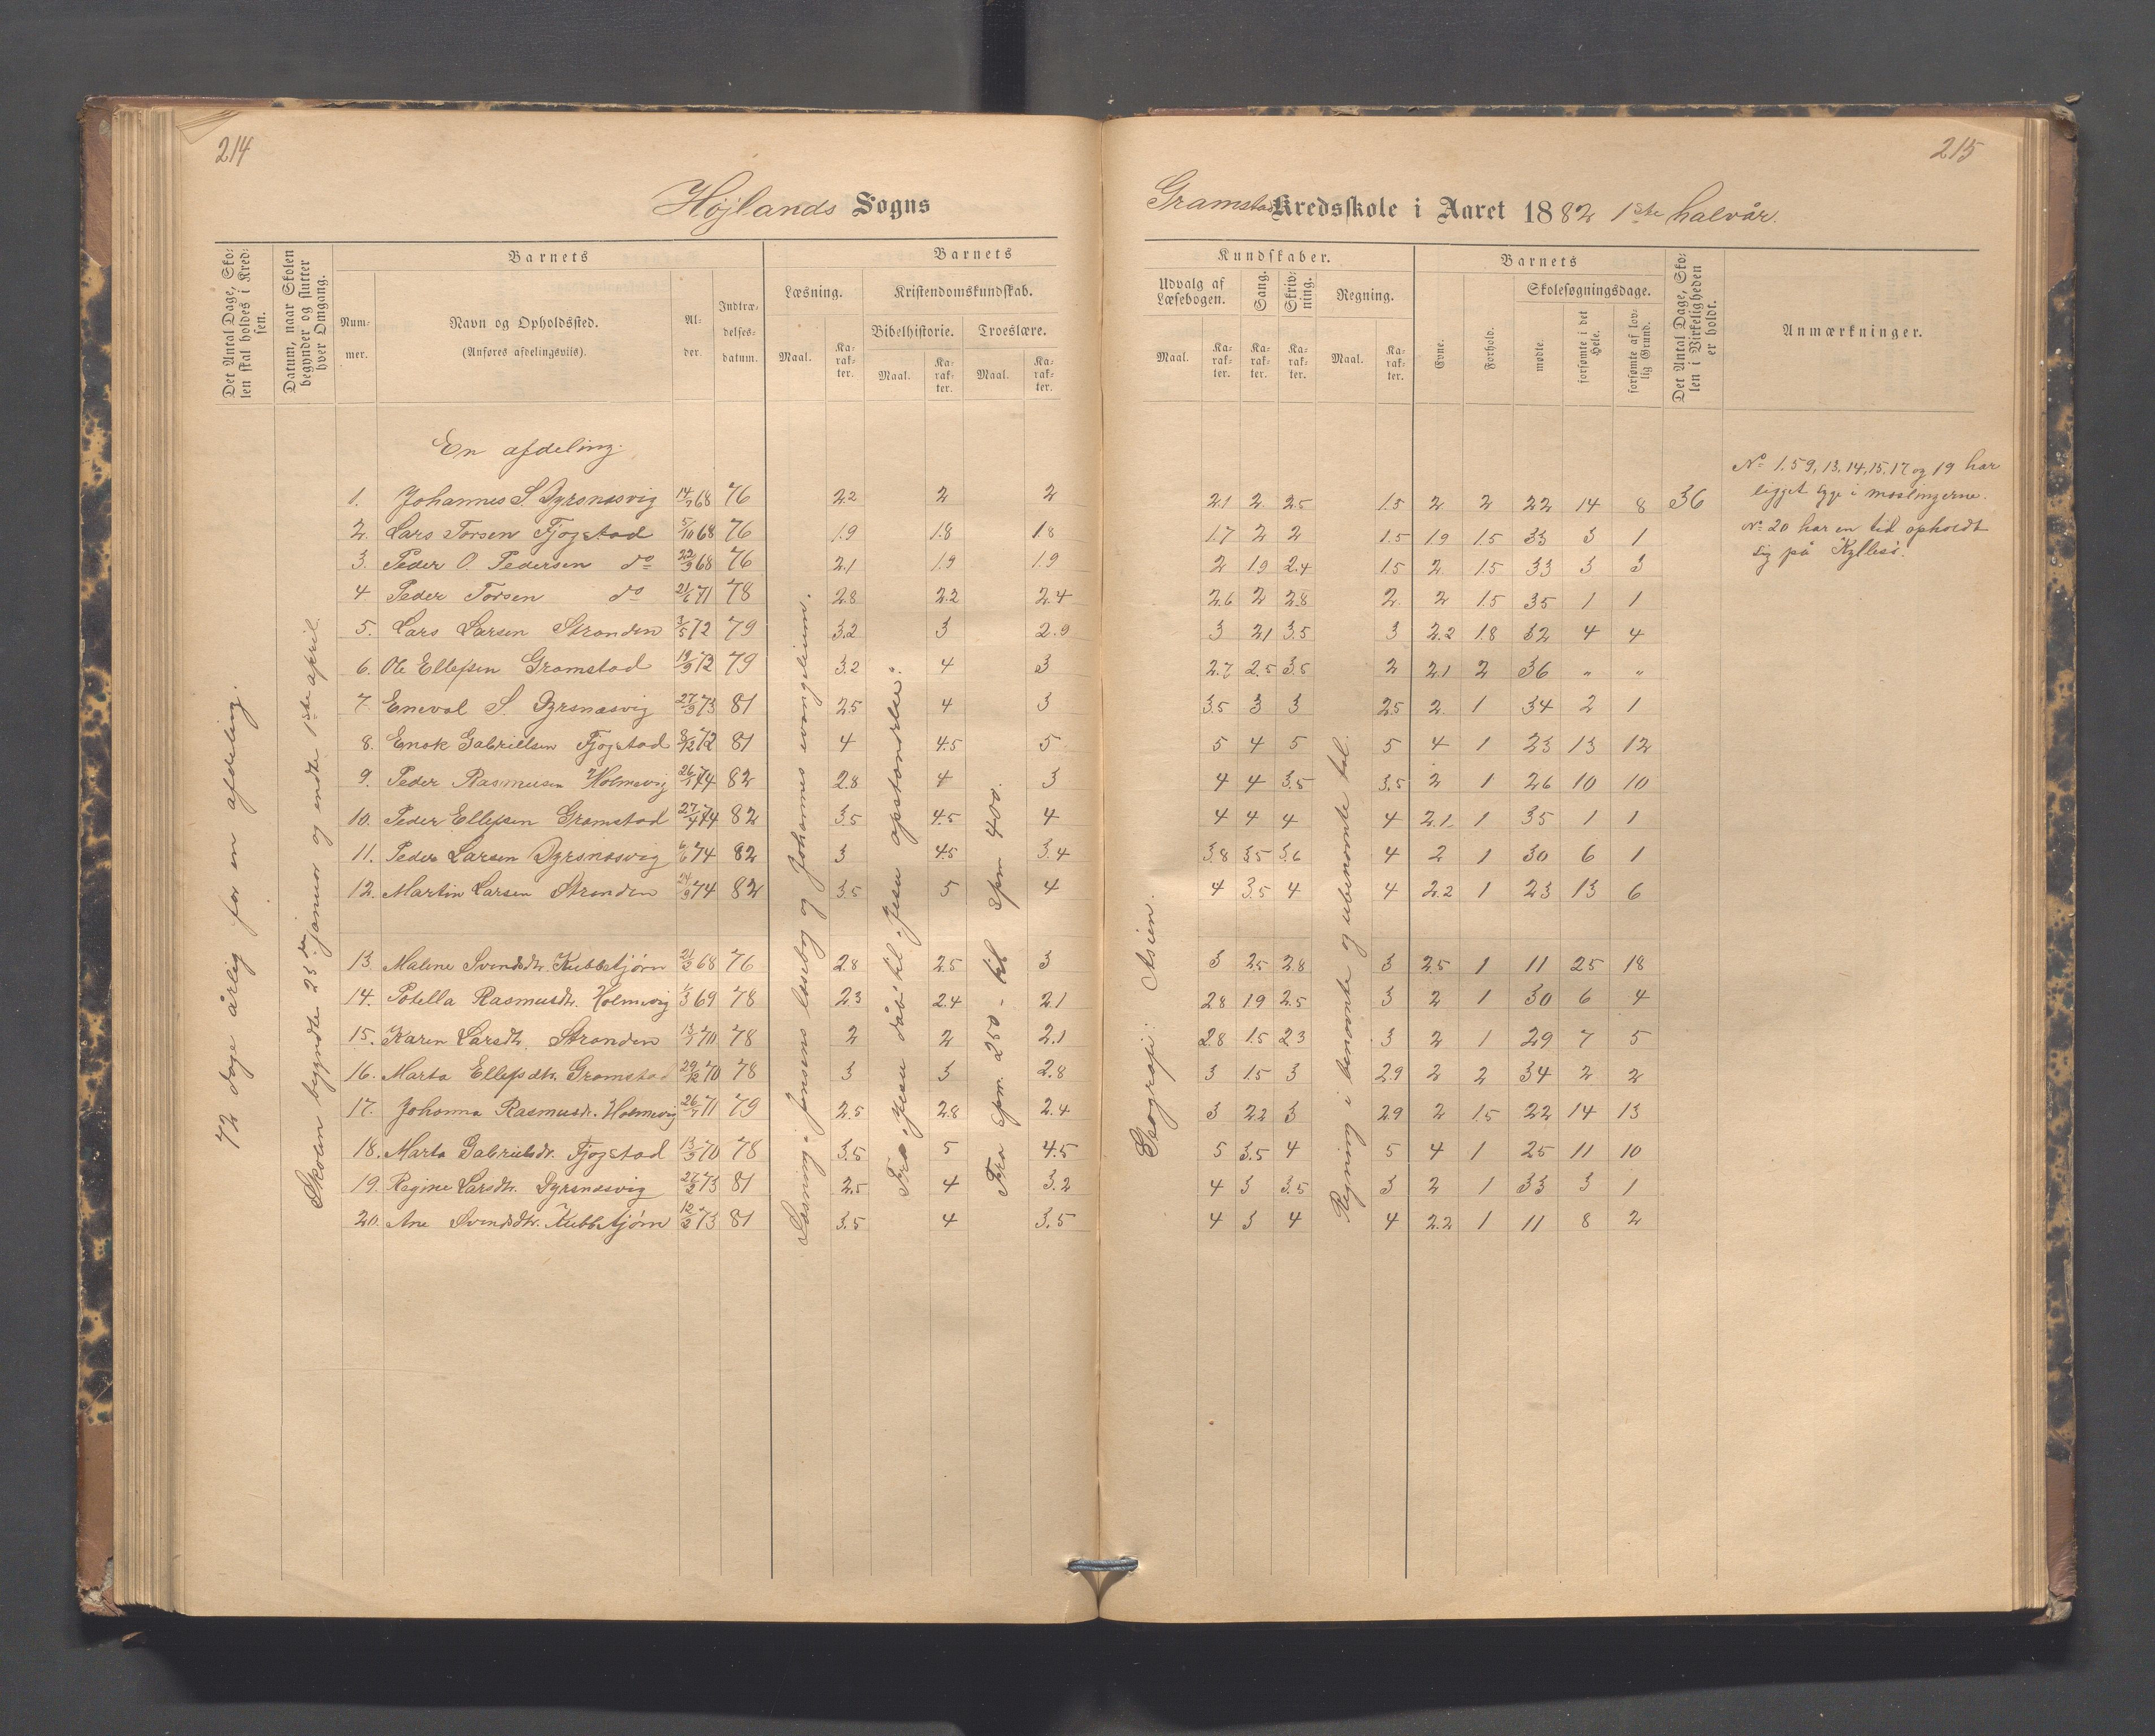 214
Højlands Sogns
Det Antal Dage, Sko-
len skal holdes i Kred-
sen.
Datum, naar Skolen
begynder og slutter
hver Omgang.
Barnets
Num-
mer.
Navn og Opholdssted.
(Anføres afdelingsviis).
Al-
der.
Indtræ-
delses-
datum.
Barnets
Læsning.
Kristendomskundskab.
Bibelhistorie.
Troeslære.
Maal.
Ka-
rak-
ter.
Maal.
Ka-
rak-
ter.
Maal.
Ka-
rak-
ter.
72 dage årlig for en afdeling.
Skolen begyndte 23de januar og endte 1ste april.
En afdeling.
1. Johannes S. Dyrsnæsvig 14/7 68 76 2.2 2 2
2. Lars Torsen Fjogstad 5/10 68 76 1.9 1.8 1.8
3. Peder O. Pedersen do 22/3 68 76 2.1 1.9 1.9
4 Peder Torsen do 21/6 71 78 2.8 2.2 2.4
5. Lars Larsen Stranden 3/5 72 79 3.2 3 2.9
6. Ole Ellefsen Gramstad 19/9 72 79 3.2 4 3
7. Eneval S. Dyrsnæsvig 27/3 73 81 2.5 4 3
8. Enok Gabrielsen Fjogstad 8/12 72 81 4 4.5 5
9. Peder Rasmusen Holmevig 26/1 74 82 2.8 4 3
10. Peder Ellefsen Gramstad 27/4 74 82 3.5 4.5 4
11. Peder Larsen Dyrsnæsvig 6/6 74 82 3 4.5 3.4
12. Martin Larsen Stranden 24/9 74 82 3.5 5 4
13 Malene Svendsdtr. Kubbetjørn 21/2 68 76 2.8 2.5 3
14. Potella Rasmusdtr. Holmevig 1/3 69 78 2.3 2.4 2.1
15. Karen Larsdtr. Stranden 13/7 70 78 2 2 2.1
16. Marta Ellefsdtr. Gramstad 29/12 70 78 3 3 2.8
17. Johanna Rasmusdtr. Holmevig 26/7 71 79 2.5 2.8 2.4
18. Marta Gabrielsdr. Fjogstad 13/3 70 78 3.5 5 4.5
19. Regine Larsdtr. Dyrsnæsvig 27/2 73 81 2.5 4 3.2
20. Ane Svendsdtr. Kubbetjørn 12/2 73 81 3.5 4 3.5
Læsning i Jensens læsebog og Johannes evangelium.
Fra „Jesu dåb" til „Jesu opstandelse".
Fra spm. 250 - til spm 400.
215
Gramstad Kredsskole i Aaret 1882 1ste halvår.
Kundskaber.
Udvalg af
Læsebogen.
Sang.
Skriv-
ning.
Regning.
Maal.
Ka-
rak-
ter.
Ka-
rak-
ter.
Ka-
rak-
ter.
Maal.
Ka-
rak-
ter.
Barnets
Evne.
Forhold.
Skolesøgningsdage.
mødte.
forsømte i det
Hele.
forsømte af lov-
lig Grund.
Det Antal Dage, Sko-
len i Virkeligheden
er holdt.
Anmærkninger.
2.1 2 2.5 1.5 2 2 22 14 8 36
1.7 2 2 1.5 1.9 1.5 33 3 1
2 1.9 2.4 1.5 2 1.5 33 3 3
2.6 2 2.8 2 2 1.5 35 1 1
3 2.1 3.5 3 2.2 1.8 32 4 4
2.7 2.5 3.5 2 2.1 2 36 " "
3.5 3 3 2.5 2 1 34 2 1
5 4 5 5 4 1 23 13 12
4 4 3.5 3.5 2 1 26 10 10
4 4 4 4 2.1 1 35 1 1
3.8 3.5 3.6 4 2 1 30 6 1
4 3.5 4 4 2.2 1 23 13 6
3 2.5 2.8 3 2.5 1 11 25 18
2.8 1.9 2.5 3 2 1 30 6 4
2.8 1.5 2.3 3 2 1 29 7 5
3 1.5 3 2.9 2 2 34 2 2
3 2.2 3 2.9 2 1.5 22 14 13
5 3.5 4 5 4 1 25 11 10
4 3 3.5 3 2 1 33 3 1
4 3 4 4 2.2 1 11 8 2
Geografi: Asien.
Regning i benævnte og ubenævnte tal.
No 1.5 9, 13, 14, 15, 17 og 19 har
ligget syge i mæslingerne.
No 20 har en tid opholdt
sig på Kyllesø.